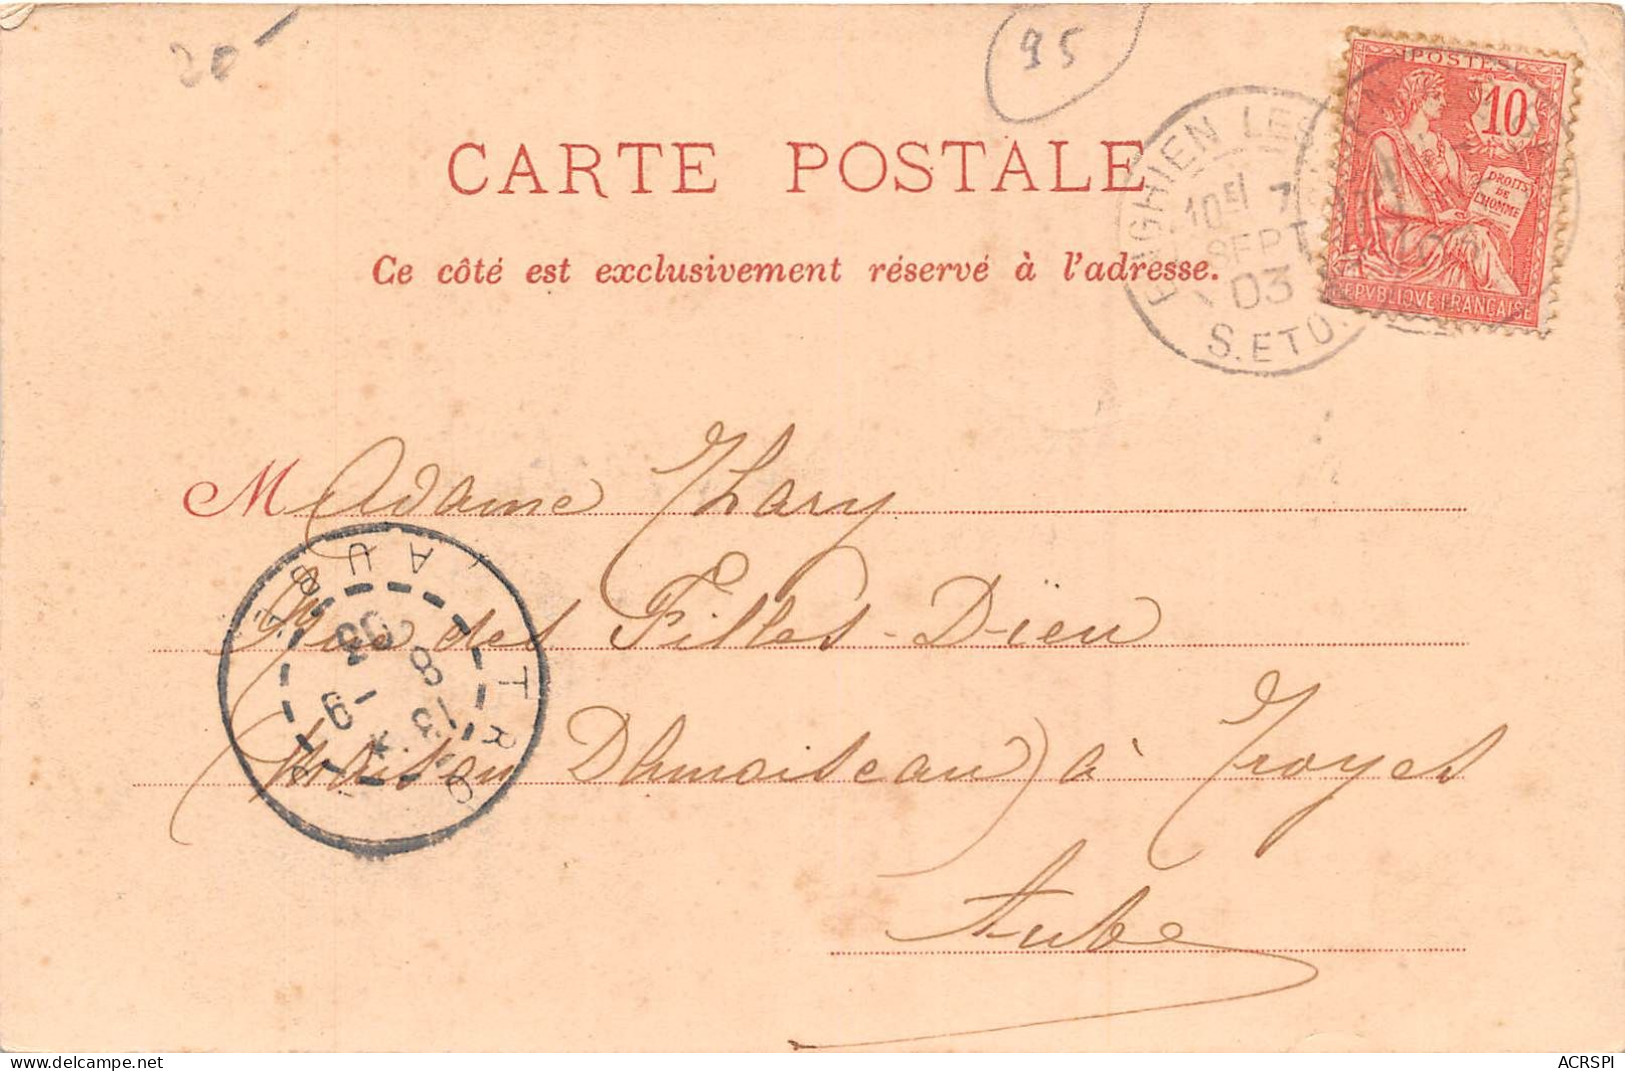 20-
95
CARTE POSTALE
Ce côté est exclusivement réservé à l'adresse.
POSTES
10
DROITS
DE
L'HOMME
REPVBLIQVE FRANÇAISE
ENGHIEN LES
10E 7
SEPT
03
S. ET O.
Madame Thary
Rue des Filles-Dieu
(Maison Dhmoiseau) à Troyes
Aube
TROYES AUBE
13
8 -9
03
ACRSPI